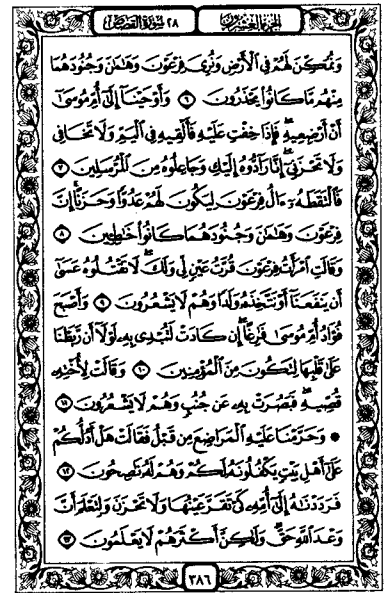 الجزء العشرون ٢٨ سورة القصص
وَنُمَكِّنَ لَهُمْ فِي الْأَرْضِ وَنُرِيَ فِرْعَوْنَ وَهَامَٰنَ وَجُنُودَهُمَا
مِنْهُم مَّا كَانُوا يَحْذَرُونَ ٦ وَأَوْحَيْنَا إِلَىٰ أُمِّ مُوسَىٰ
أَنْ أَرْضِعِيهِ فَإِذَا خِفْتِ عَلَيْهِ فَأَلْقِيهِ فِي الْيَمِّ وَلَا تَخَافِي
وَلَا تَحْزَنِي إِنَّا رَادُّوهُ إِلَيْكِ وَجَاعِلُوهُ مِنَ الْمُرْسَلِينَ ٧
فَالْتَقَطَهُ آلُ فِرْعَوْنَ لِيَكُونَ لَهُمْ عَدُوًّا وَحَزَنًا إِنَّ
فِرْعَوْنَ وَهَامَٰنَ وَجُنُودَهُمَا كَانُوا خَاطِئِينَ ٨
وَقَالَتِ امْرَأَتُ فِرْعَوْنَ قُرَّتُ عَيْنٍ لِّي وَلَكَ لَا تَقْتُلُوهُ عَسَىٰ
أَن يَنفَعَنَا أَوْ نَتَّخِذَهُ وَلَدًا وَهُمْ لَا يَشْعُرُونَ ٩ وَأَصْبَحَ
فُؤَادُ أُمِّ مُوسَىٰ فَارِغًا إِن كَادَتْ لَتُبْدِي بِهِ لَوْلَا أَن رَّبَطْنَا
عَلَىٰ قَلْبِهَا لِتَكُونَ مِنَ الْمُؤْمِنِينَ ١٠ وَقَالَتْ لِأُخْتِهِ
قُصِّيهِ فَبَصُرَتْ بِهِ عَن جُنُبٍ وَهُمْ لَا يَشْعُرُونَ ١١
۞ وَحَرَّمْنَا عَلَيْهِ الْمَرَاضِعَ مِن قَبْلُ فَقَالَتْ هَلْ أَدُلُّكُمْ
عَلَىٰ أَهْلِ بَيْتٍ يَكْفُلُونَهُ لَكُمْ وَهُمْ لَهُ نَاصِحُونَ ١٢
فَرَدَدْنَاهُ إِلَىٰ أُمِّهِ كَيْ تَقَرَّ عَيْنُهَا وَلَا تَحْزَنَ وَلِتَعْلَمَ أَنَّ
وَعْدَ اللَّهِ حَقٌّ وَلَٰكِنَّ أَكْثَرَهُمْ لَا يَعْلَمُونَ ١٣
٣٨٦